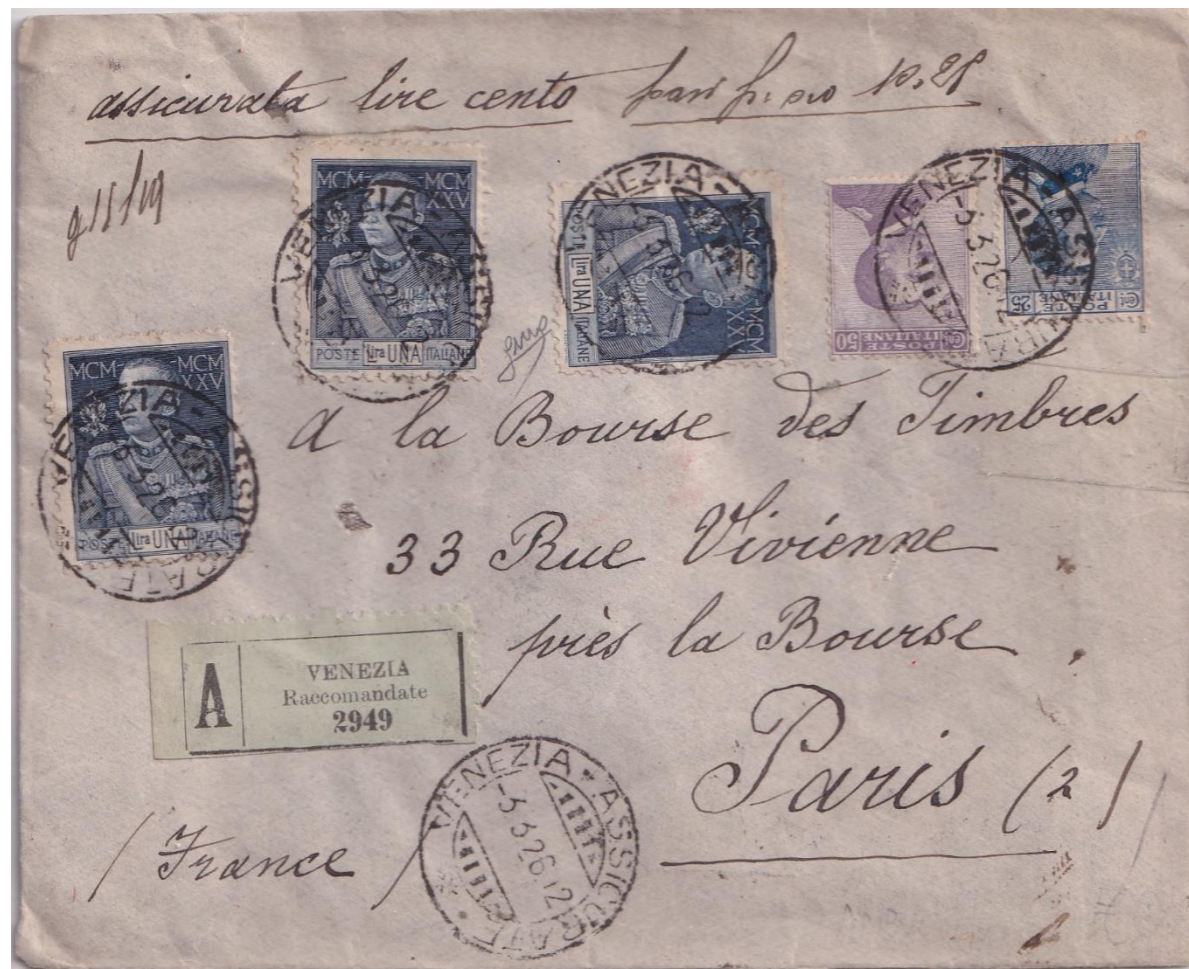 assicurata lire cento
MCM MCM
XXV
POSTE Lira UNA ITALIANE
VENEZIA - ASSICURATE
MCM MCM
XXV
POSTE Lira UNA ITALIANE
VENEZIA - ASSICURATE
POSTE
ITALIANE
Ct 50
POSTE
ITALIANE
Ct 25
VENEZIA - ASSICURATE
-3.3.26.12
MCM MCM
XXV
POSTE Lira UNA ITALIANE
VENEZIA - ASSICURATE
A la Bourse des Timbres
33 Rue Vivienne
près la Bourse
Paris (2)
/ France /
A
VENEZIA
Raccomandate
2949
VENEZIA - ASSICURATE
-3.3.26.12